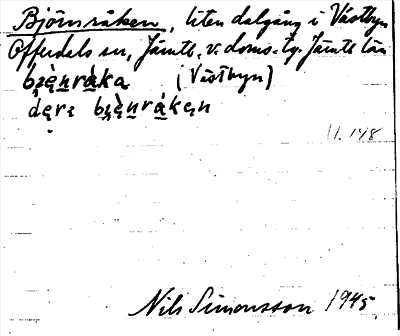 Björnråken, liten dalgång i Västbyn
Offerdals sn, Jämtl. v. doms. tg. Jämtl. län
bjènråka (Västbyn)
dɛrɛ bjènråken
11. 148
Nils Simonsson 1945.